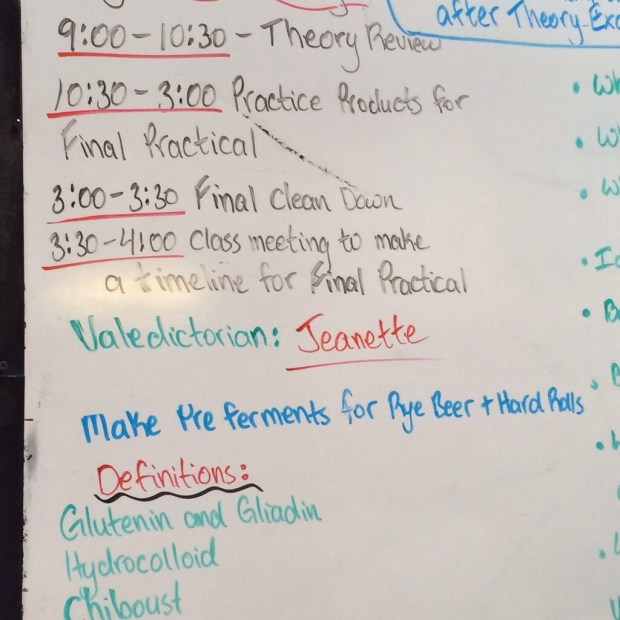 after Theory Exa
9:00-10:30 - Theory Review
10:30 - 3:00 Practice Products for
Final Practical
3:00-3:30 Final Clean Down
3:30-4:00 Class meeting to make
a timeline for Final Practical
Valedictorian: Jeanette
Make Pre ferments for Rye Beer + Hard Rolls
Definitions:
Glutenin and Gliadin
Hydrocolloid
Chiboust